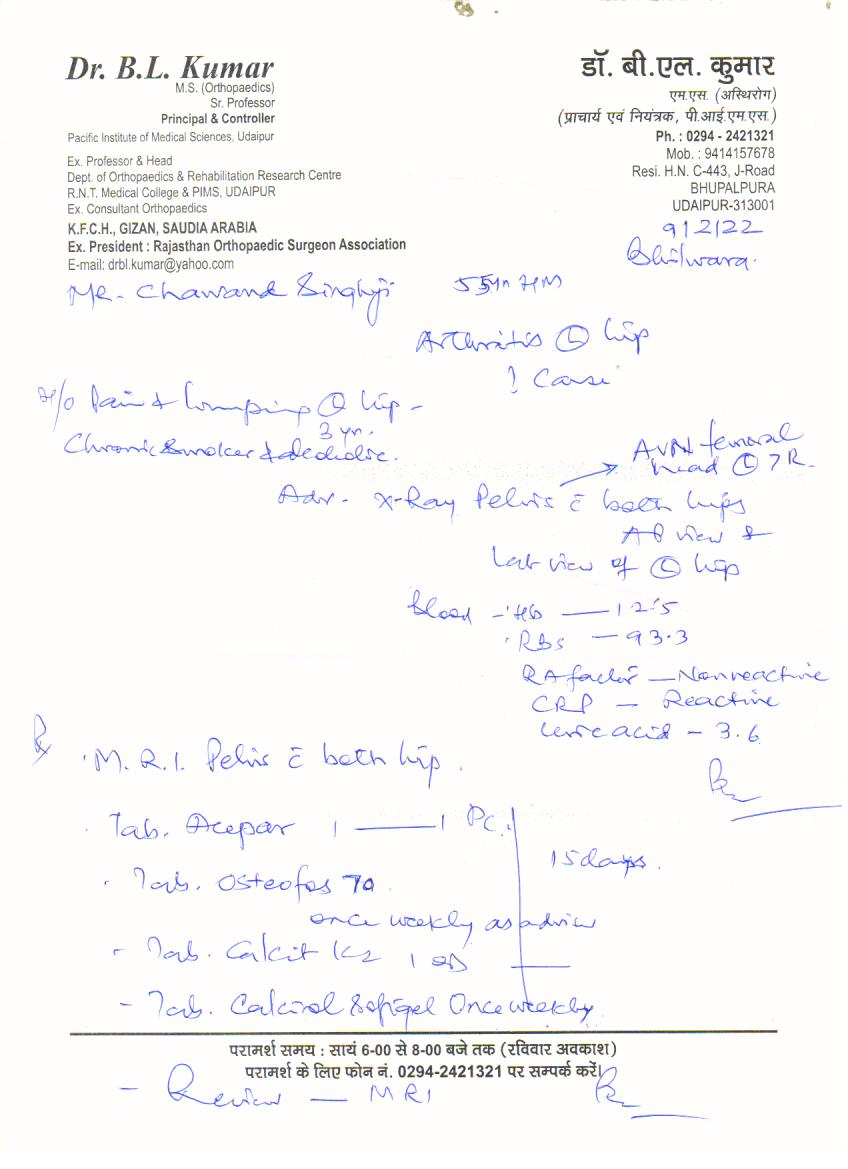 Dr. B.L. Kumar
M.S. (Orthopaedics)
Sr. Professor
Principal & Controller
Pacific Institute of Medical Sciences, Udaipur
Ex. Professor & Head
Dept. of Orthopaedics & Rehabilitation Research Centre
R.N.T. Medical College & PIMS, UDAIPUR
Ex. Consultant Orthopaedics
K.F.C.H., GIZAN, SAUDIA ARABIA
Ex. President : Rajasthan Orthopaedic Surgeon Association
E-mail: drbl.kumar@yahoo.com
डॉ. बी.एल. कुमार
एम.एस. (अस्थिरोग)
(प्राचार्य एवं नियंत्रक, पी.आई.एम.एस.)
Ph. : 0294 - 2421321
Mob. : 9414157678
Resi. H.N. C-443, J-Road
BHUPALPURA
UDAIPUR-313001
9/2/22
Bhilwara.
Mr. Chawand Singhji 55yr HM
Arthritis Ⓛ hip
? Cause
H/O Pain & Limping Ⓛ hip -
3 yr.
Chronic Smoker & alcoholic.
AVN femoral
head Ⓛ > R.
Adv. X-Ray Pelvis c̄ both hips
AP view &
Lat view of Ⓛ hip
Blood - Hb — 12.5
RBS — 93.3
RA factor — Nonreactive
CRP — Reactive
Uric acid - 3.6
℞
M.R.I. Pelvis c̄ both hip.
Tab. Acepar 1 — 1 PC.
15 days.
Tab. Osteofos 70
once weekly as advise
- Tab. Calcit K2 1 OD
- Tab. Calcirol Sofigel Once weekly.
परामर्श समय : सायं 6-00 से 8-00 बजे तक (रविवार अवकाश)
परामर्श के लिए फोन नं. 0294-2421321 पर सम्पर्क करें।
- Review — MRI